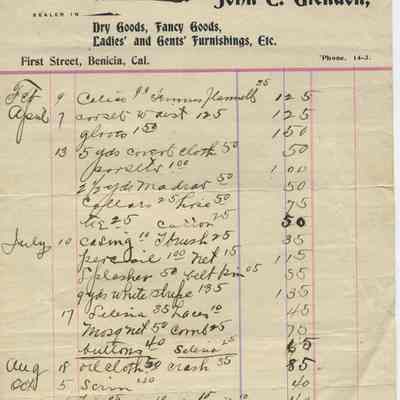 John C. Glendon,
DEALER IN
Dry Goods, Fancy Goods,
Ladies' and Gents' Furnishings, Etc.
First Street, Benicia, Cal. 'Phone. 14-3.
Feb 9 25 1 25
April 7 corset waist 125 1 25
gloves 150 1 50
13 5 yds covert cloth 50 50
corsets 1.00 1 00
2½ yds Madras 50 50
Collars 25 hose 50 75
tie 25 25 50
July 10 casing 10 brush 25 35
percail 1.00 net 15 1 15
Splasher 50 belt pin 05 35
yds white stripe 135 1 35
17 Selena 35 laces 10 45
Mosq net 50 comb 25 75
buttons 40 Selena 25 65
Aug 18 oil cloth 50 crash 35 85
Oct 5 Scrim 40 40